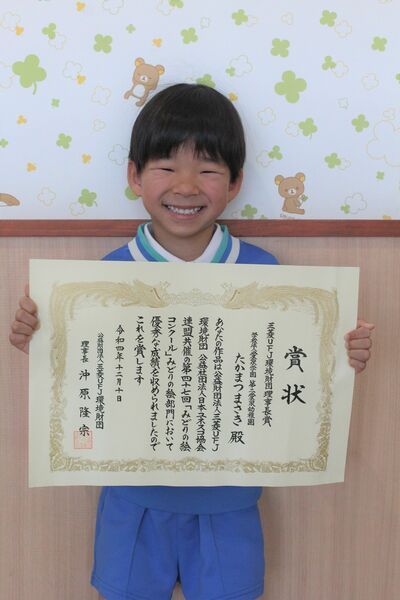 賞状
三菱UFJ環境財団理事長賞
学校法人愛泉学園 第二愛泉幼稚園
たかまつまさき 殿
あなたの作品は公益財団法人三菱UFJ
環境財団 公益社団法人日本ユネスコ協会
連盟共催の第四十七回「みどりの絵
コンクール」みどりの絵部門において
優秀な成績を収められましたので
これを賞します
令和四年十二月十日
公益財団法人三菱UFJ環境財団
理事長 沖原隆宗